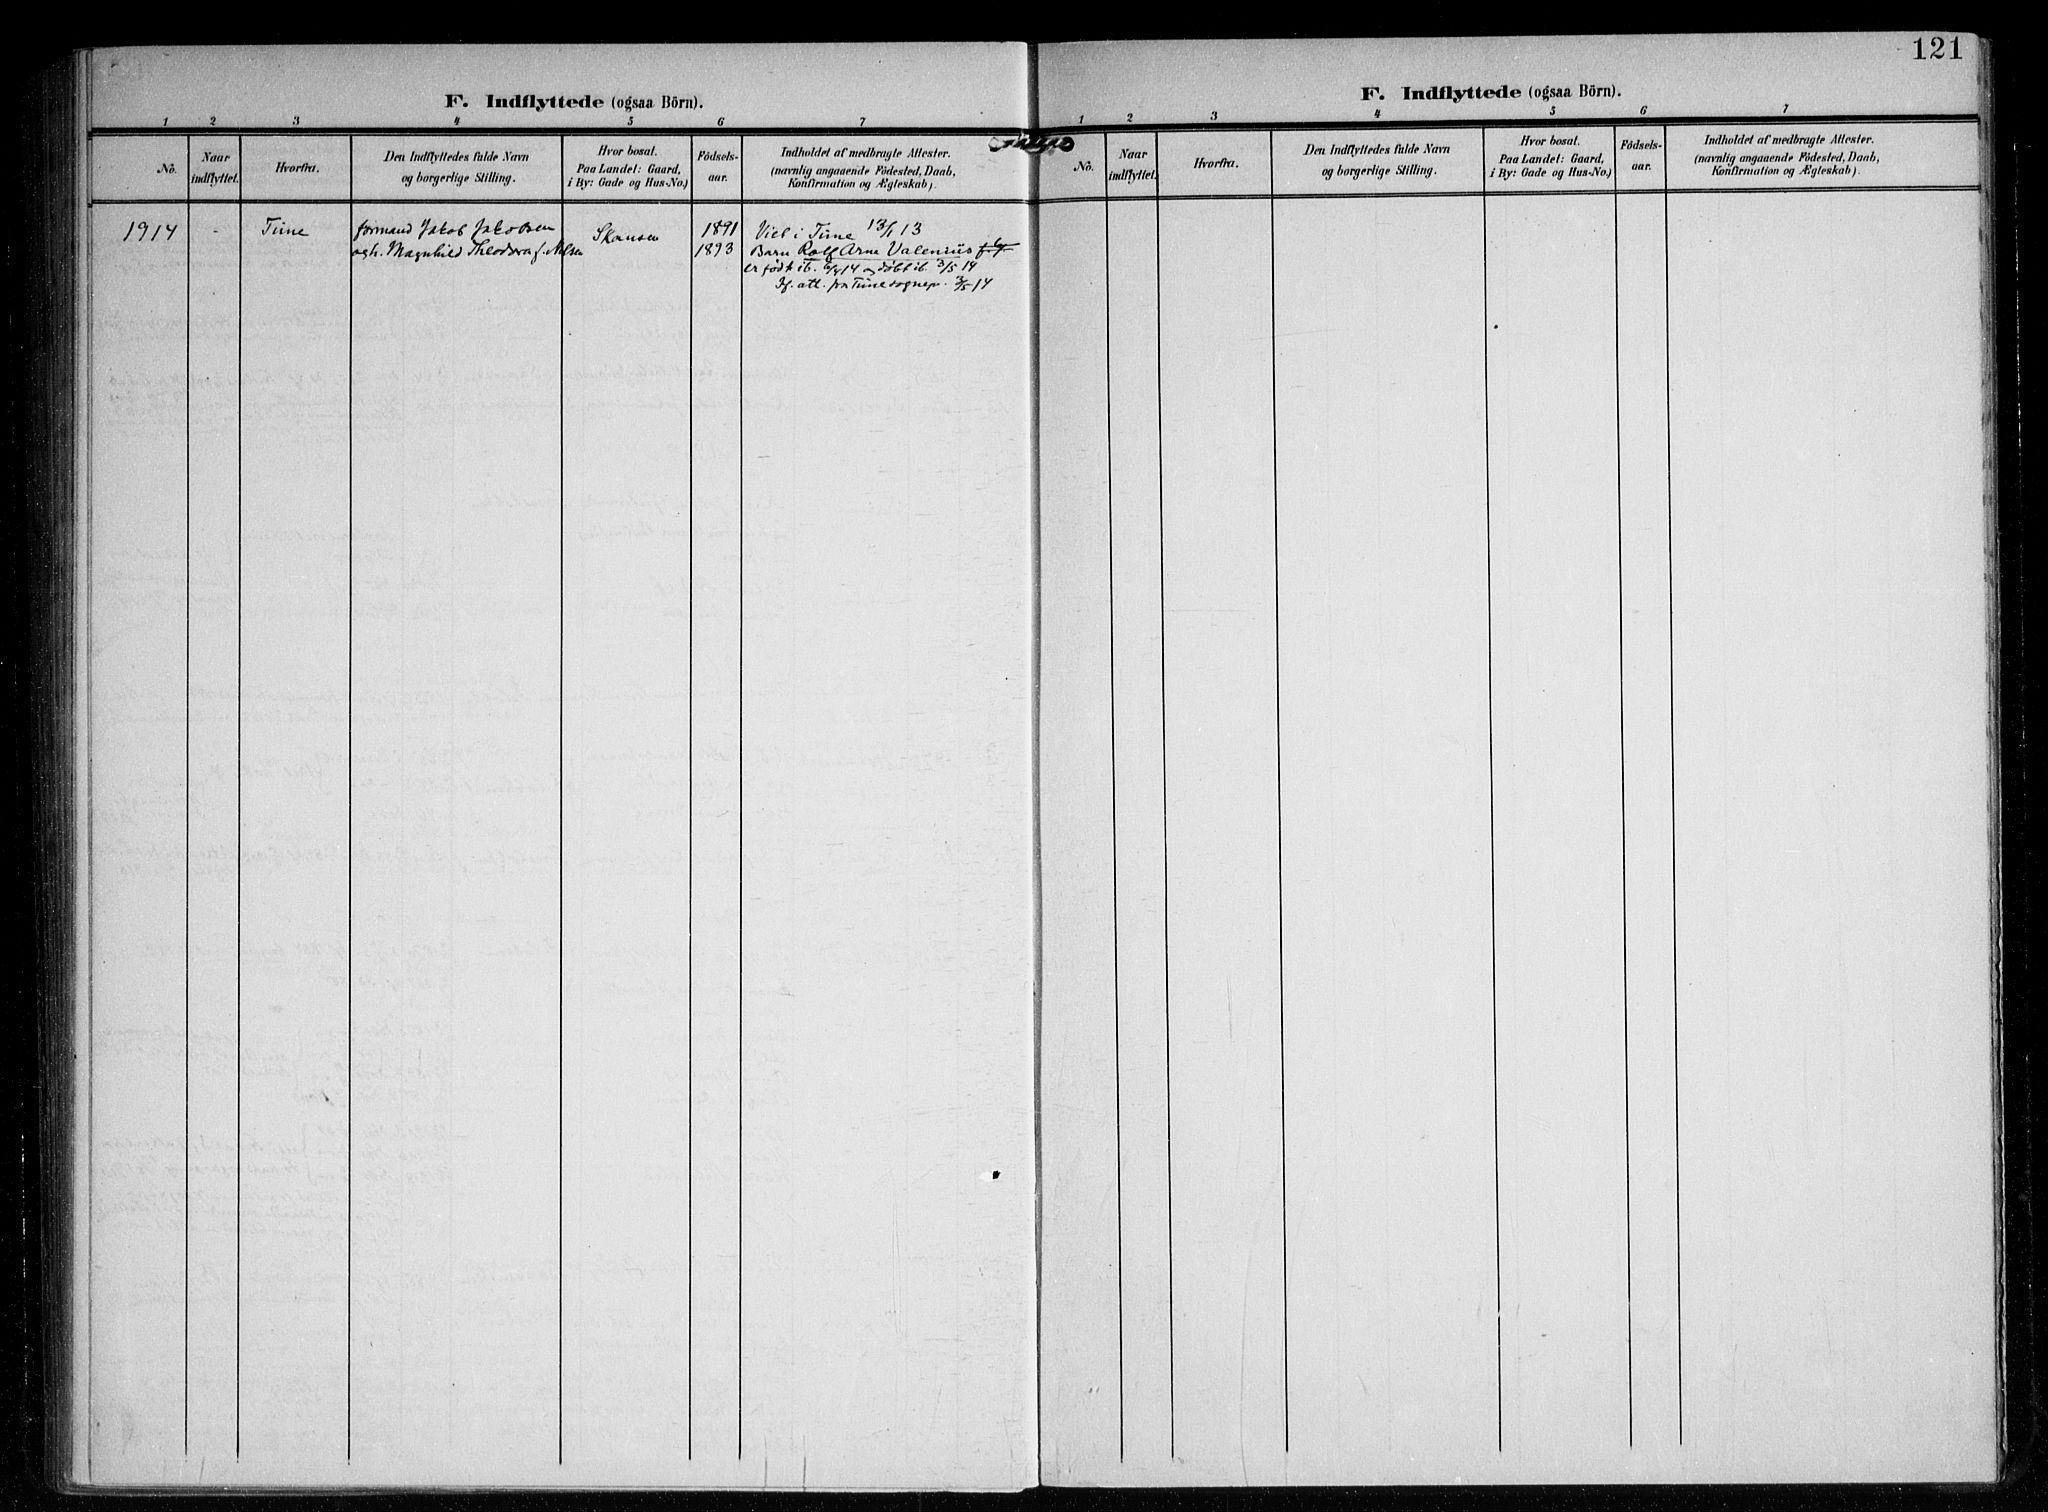 121
F. Indflyttede (ogsaa Börn).
1 2 3 4 5 6 7
No.
Naar
indflyttet.
Hvorfra.
Den Indflyttedes fulde Navn
og borgerlige Stilling.
Hvor bosat.
Paa Landet: Gaard,
i By: Gade og Hus-No.)
Födsels-
aar.
Indholdet af medbragte Attester.
(navnlig angaaende Födested, Daab,
Konfirmation og Ægteskab).
1914 - Tune formand Jakob Jakobsen Skansen 1891 Viet i Tune 13/1 13
og h. Magnhild Theodora f. Nilsen 1893 Barn Rolf Arne Valenius
er født ib. 6/4 14 og døbt ib. 3/5 14
If. att. fra Tune sognepr. 3/5 14
F. Indflyttede (ogsaa Börn).
1 2 3 4 5 6 7
No.
Naar
indflyttet.
Hvorfra.
Den Indflyttedes fulde Navn
og borgerlige Stilling.
Hvor bosat.
Paa Landet: Gaard,
i By: Gade og Hus-No.)
Födsels-
aar.
Indholdet af medbragte Attester.
(navnlig angaaende Födested, Daab,
Konfirmation og Ægteskab).